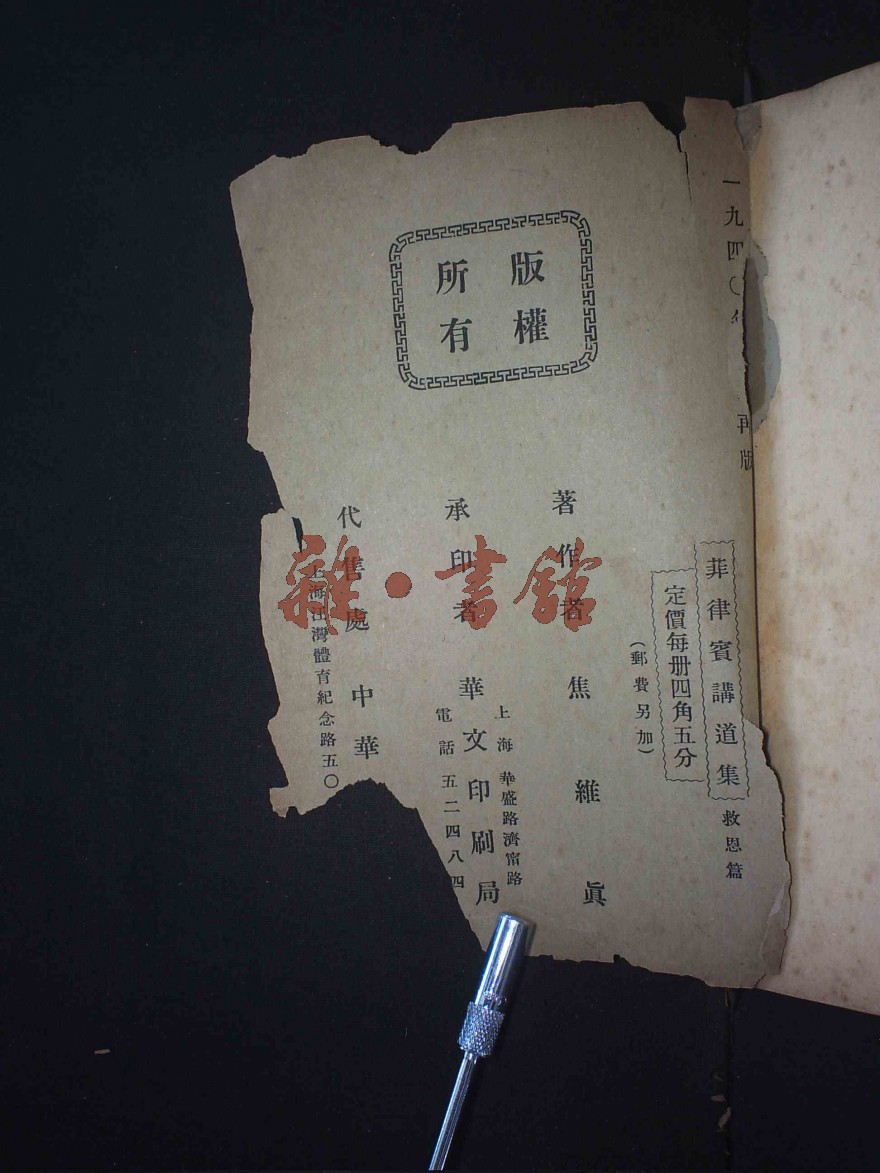 一九四〇年 再版
菲律賓講道集 救恩篇
定價每册四角五分
（郵費另加）
版權所有
著作者 焦維眞
上海 華盛路濟甯路
承印者 華文印刷局
電話 五二四八四
代售處 中華
上海江灣體育紀念路五〇
雜·書館